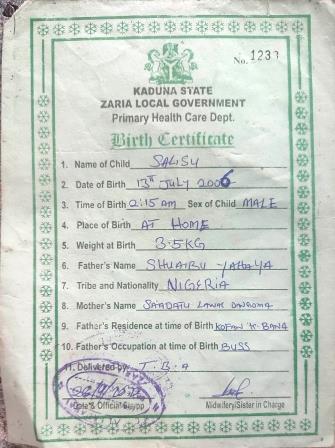 No. 1233
KADUNA STATE
ZARIA LOCAL GOVERNMENT
Primary Health Care Dept.
Birth Certificate
1. Name of Child SALISU
2. Date of Birth 13TH JULY 2006
3. Time of Birth 2:15 AM Sex of Child MALE
4. Place of Birth AT HOME
5. Weight at Birth 3.5KG
6. Father's Name SHUAIBU YAHAYA
7. Tribe and Nationality NIGERIA
8. Mother's Name SA'ADATU LAWAL
9. Father's Residence at time of Birth KOFAN K. BANA
10. Father's Occupation at time of Birth BUSS
11. Delivered by T.B.A
Date & Official Stamp Midwifery/Sister in Charge